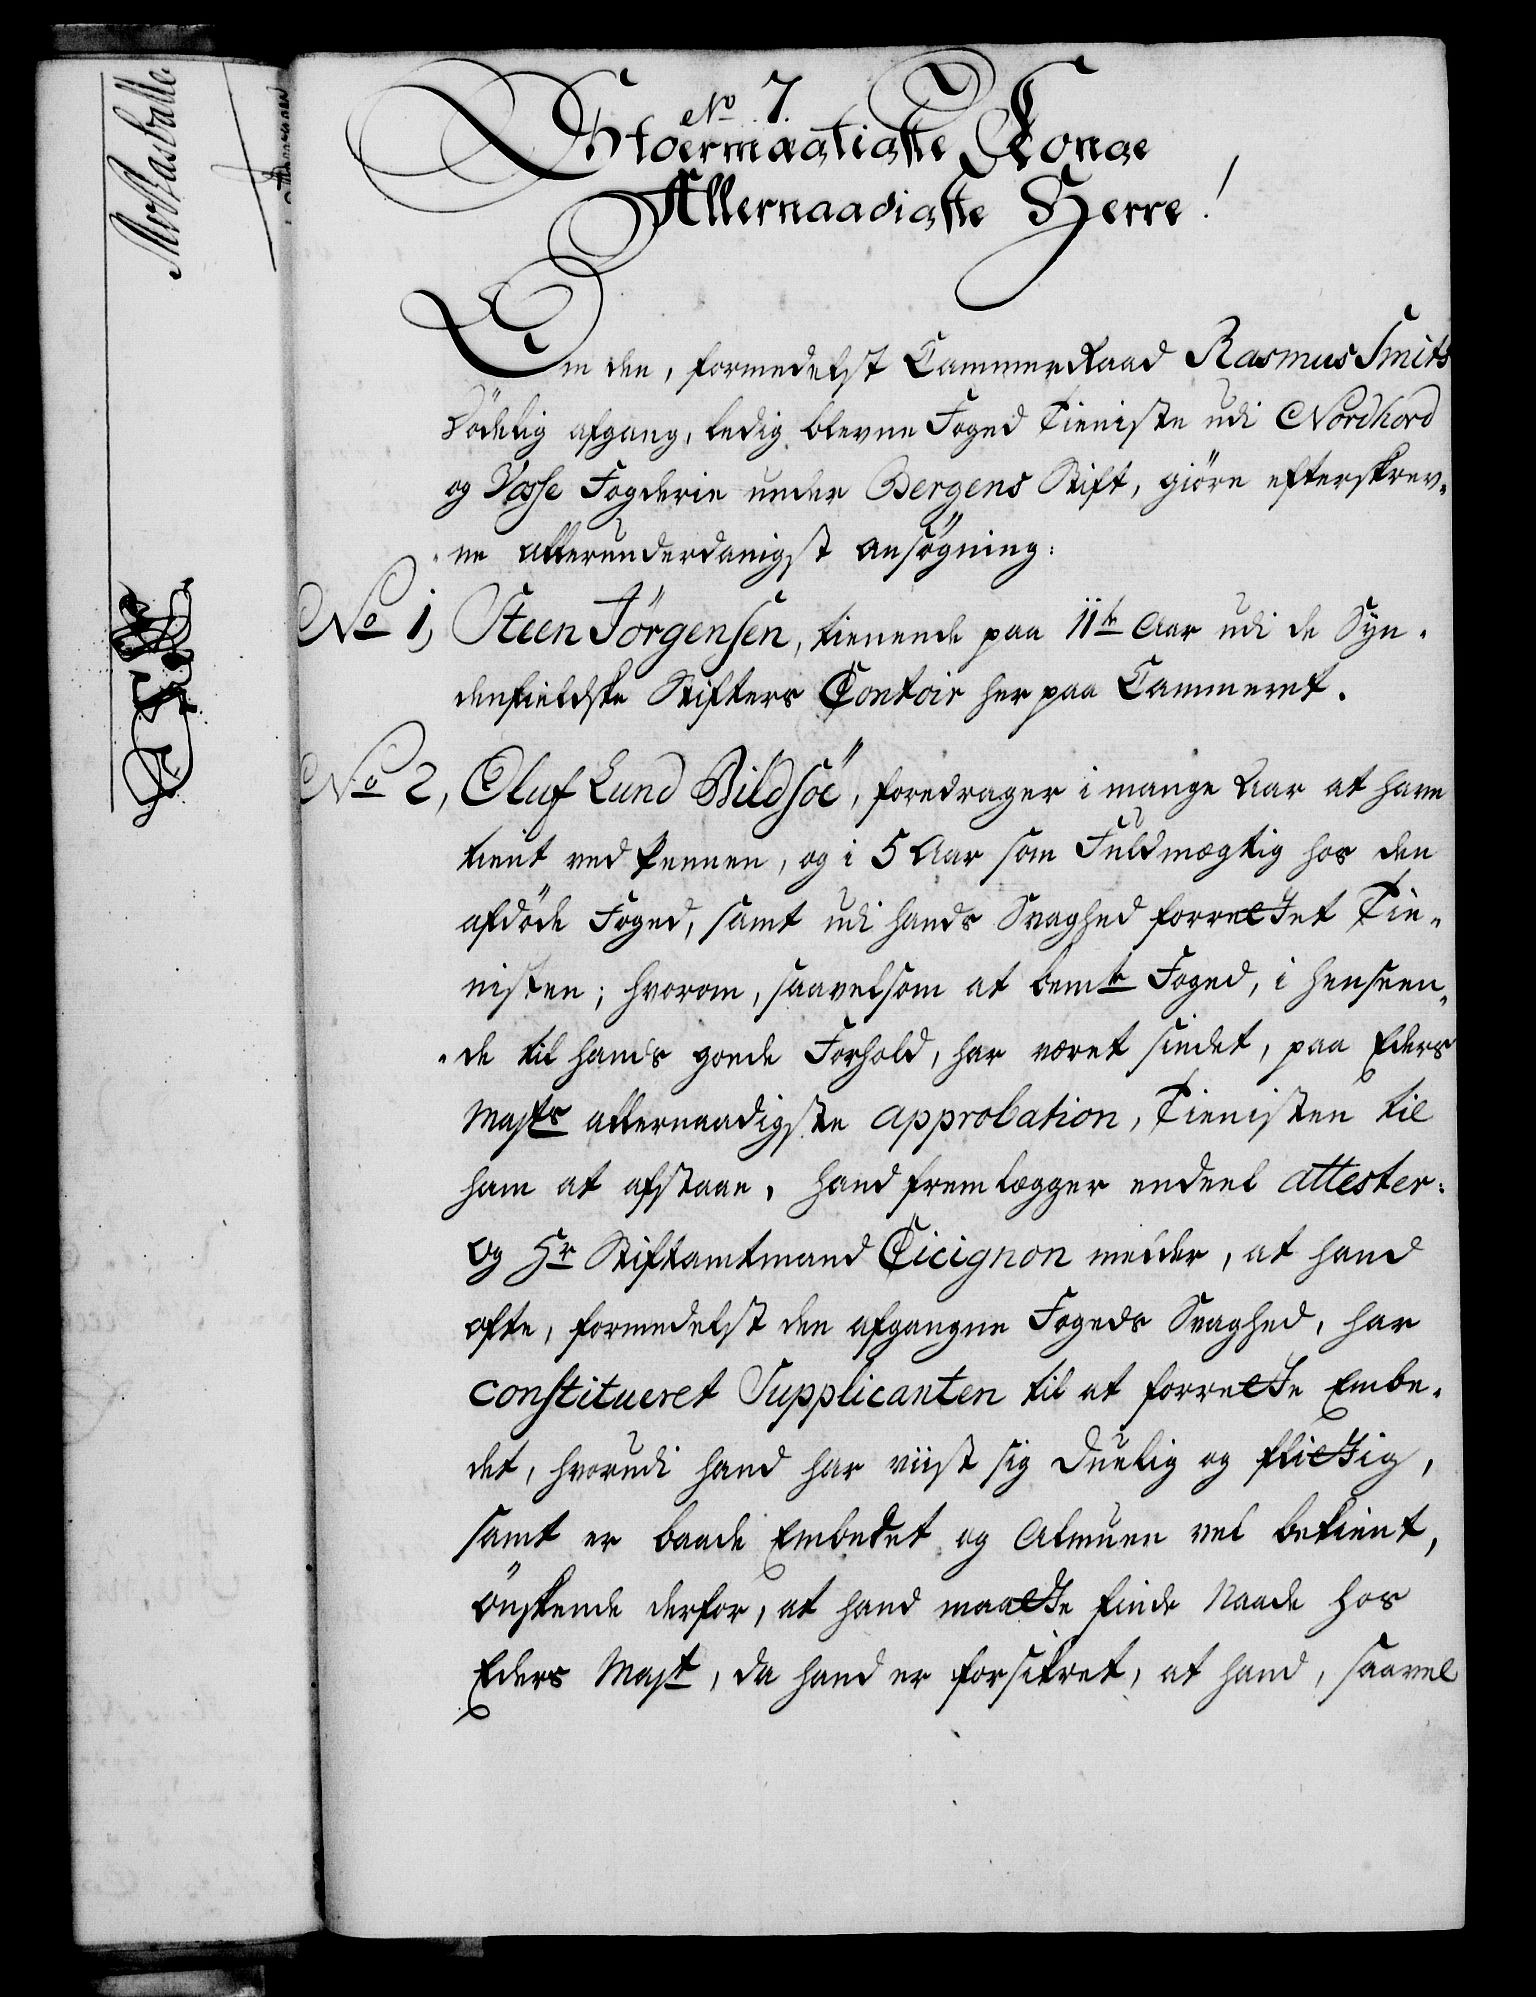 No 7.
Stoermægtigste Konge
Allernaadigste Herre!
Om den, formedelst CammerRaad Rasmus Smits
Dödelig afgang, ledig blevne Foged Tieniste udi Nordhord
og Vosse Fogderie under Bergens Stift, giöre efterskrev-
ne allerunderdanigst ansögning:
No 1, Steen Jörgensen, tienende paa 11te Aar udi de Syn-
denfieldske Stifters Contoir her paa Cammeret.
No 2, Oluf Lund Bildsöe, foredrager i mange Aar at have
tient ved Pennen, og i 5 Aar som Fuldmægtig hos den
afdöde Foged, samt udi hands Svaghed forrettet Tie-
nisten; hvorom, saavelsom at bemte Foged, i henseen-
de til hands goede Forhold, har været sindet, paa Eders
Majts allernaadigste approbation, Tienisten til
ham at afstaae, hand fremlægger endeel attester:
Og Hr Stiftamtmand Cicignon melder, at hand
ofte, formedelst den afgangne Fogeds Svaghed, har
constitueret Supplicanten til at forrette Embe-
det, hvorudi hand har viist sig Duelig og flittig,
samt er baade Embedet og Almuen vel bekient,
önskende derfor, at hand maatte finde Naade hos
Eders Majt, da hand er forsikret, at hand, saavel